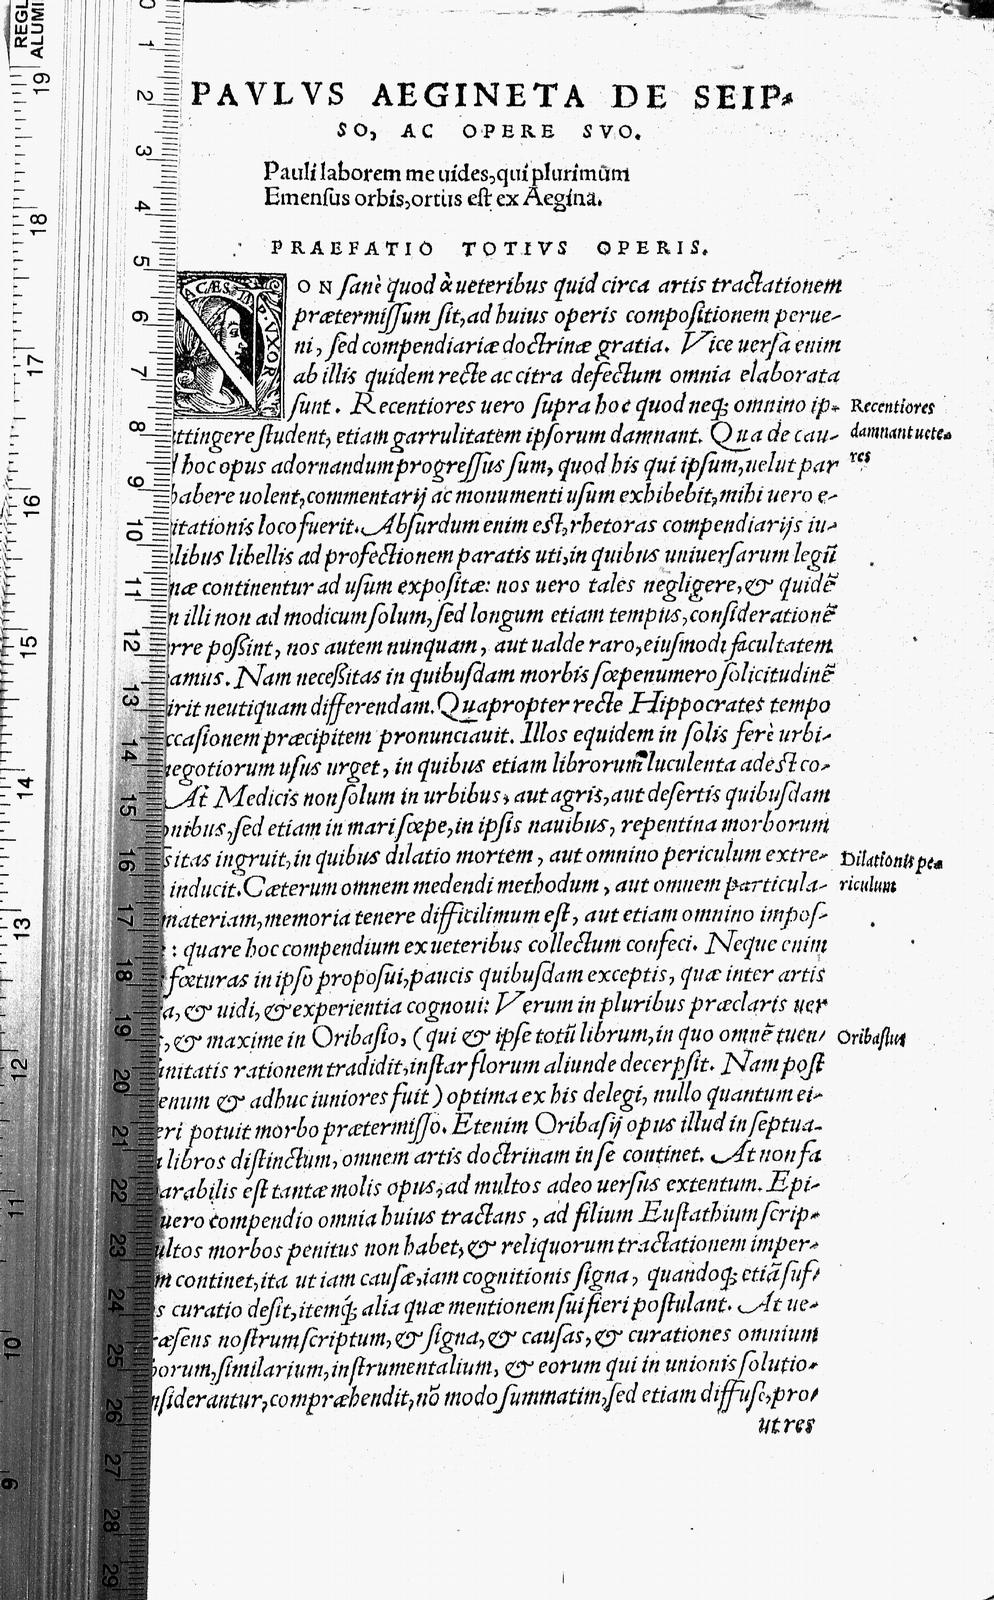 PAVLVS AEGINETA DE SEIP-
SO, AC OPERE SVO.
Pauli laborem me uides, qui plurimũm
Emensus orbis, ortus est ex Aegina.
PRAEFATIO TOTIVS OPERIS.
NON sanè quod à ueteribus quid circa artis tractationem
prætermissum sit, ad huius operis compositionem perue-
ni, sed compendiariæ doctrinæ gratia. Vice uersa enim
ab illis quidem recte ac citra defectum omnia elaborata
sunt. Recentiores uero supra hoc quod neq; omnino ip-
Recentiores
damnant uete-
res
ttingere student, etiam garrulitatem ipsorum damnant. Qua de cau-
hoc opus adornandum progressus sum, quod his qui ipsum, uelut par
habere uolent, commentarij ac monumenti usum exhibebit, mihi uero e-
itationis loco fuerit. Absurdum enim est, rhetoras compendiarijs iu-
libus libellis ad profectionem paratis uti, in quibus uniuersarum legũ
næ continentur ad usum expositæ: nos uero tales negligere, & quidẽ
n illi non ad modicum solum, sed longum etiam tempus, considerationẽ
rre possint, nos autem nunquam, aut ualde raro, eiusmodi facultatem
amus. Nam necessitas in quibusdam morbis sæpenumero solicitudinẽ
irit neutiquam differendam. Quapropter recte Hippocrates tempo
ccasionem præcipitem pronunciauit. Illos equidem in solis ferè urbi-
negotiorum usus urget, in quibus etiam librorum luculenta adest co-
At Medicis non solum in urbibus, aut agris, aut desertis quibusdam
onibus, sed etiam in mari sæpe, in ipsis nauibus, repentina morborum
sitas ingruit, in quibus dilatio mortem, aut omnino periculum extre-
Dilationis pe-
riculum
inducit. Cæterum omnem medendi methodum, aut omnem particula-
materiam, memoria tenere difficilimum est, aut etiam omnino impos-
: quare hoc compendium ex ueteribus collectum confeci. Neque enim
fœturas in ipso proposui, paucis quibusdam exceptis, quæ inter artis
a, & uidi, & experientia cognoui: Verum in pluribus præclaris uer
, & maxime in Oribasio, (qui & ipse totũ librum, in quo omnẽ tuen-
Oribasius
anitatis rationem tradidit, instar florum aliunde decerpsit. Nam post
enum & adhuc iuniores fuit) optima ex his delegi, nullo quantum ei-
eri potuit morbo prætermisso. Etenim Oribasij opus illud in septua-
libros distinctum, omnem artis doctrinam in se continet. At non fa
arabilis est tantæ molis opus, ad multos adeo uersus extentum. Epi-
uero compendio omnia huius tractans, ad filium Eustathium scrip-
ultos morbos penitus non habet, & reliquorum tractationem imper-
m continet, ita ut iam causæ, iam cognitionis signa, quandoq; etiã suf-
s curatio desit, itemq́; alia quæ mentionem sui fieri postulant. At ue-
ræsens nostrum scriptum, & signa, & causas, & curationes omnium
borum, similarium, instrumentalium, & eorum qui in unionis solutio-
nsiderantur, compræhendit, nõ modo summatim, sed etiam diffuse, pro-
ut res